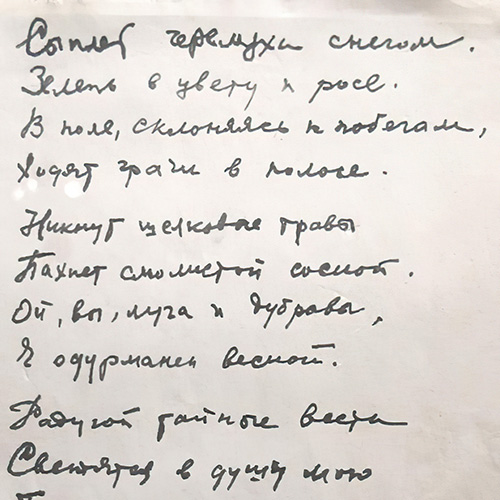 Сыплет черемуха снегом.
Зелень в цвету и росе.
В поле, склоняясь к побегам,
Ходят грачи в полосе.
Никнут шелковые травы
Пахнет смолистой сосной.
Ой, вы, луга и дубравы,
Я одурманен весной.
Радугой тайные вести
Светятся в душу мою